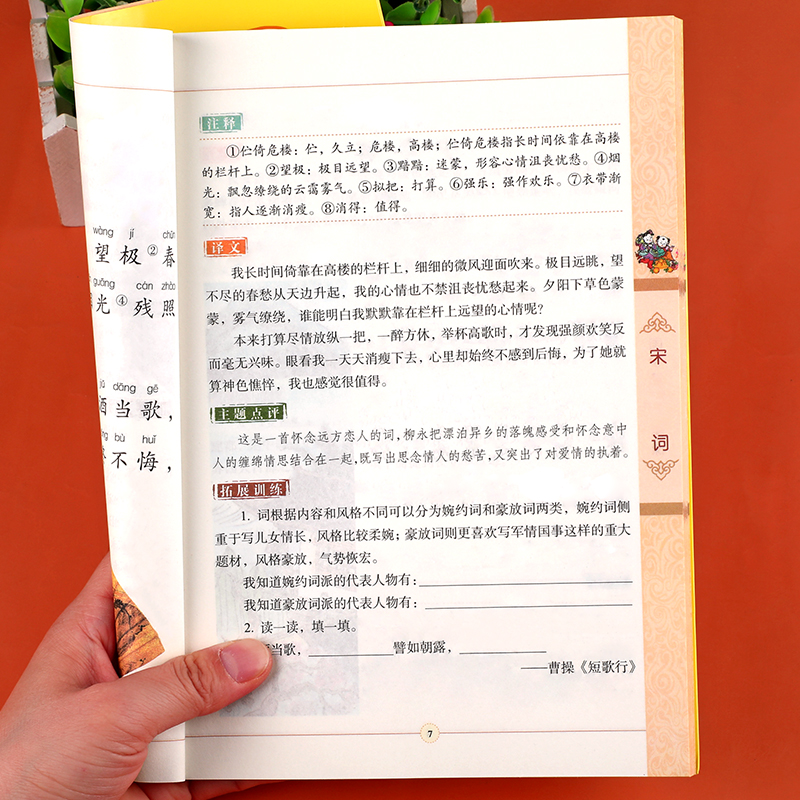 wàng jí
望极②春
guāng cán zhào
光④残照
dāng gē
酒当歌，
bù huǐ
不悔，
注释
①伫倚危楼：伫，久立；危楼，高楼；伫倚危楼指长时间依靠在高楼
的栏杆上。②望极：极目远望。③黯黯：迷蒙，形容心情沮丧忧愁。④烟
光：飘忽缭绕的云霭雾气。⑤拟把：打算。⑥强乐：强作欢乐。⑦衣带渐
宽：指人逐渐消瘦。⑧消得：值得。
译文
我长时间倚靠在高楼的栏杆上，细细的微风迎面吹来。极目远眺，望
不尽的春愁从天边升起，我的心情也不禁沮丧忧愁起来。夕阳下草色蒙
蒙，雾气缭绕，谁能明白我默默靠在栏杆上远望的心情呢？
本来打算尽情放纵一把，一醉方休，举杯高歌时，才发现强颜欢笑反
而毫无兴味。眼看我一天天消瘦下去，心里却始终不感到后悔，为了她就
算神色憔悴，我也感觉很值得。
主题点评
这是一首怀念远方恋人的词，柳永把漂泊异乡的落魄感受和怀念意中
人的缠绵情思结合在一起，既写出思念情人的愁苦，又突出了对爱情的执着。
拓展训练
1. 词根据内容和风格不同可以分为婉约词和豪放词两类，婉约词侧
重于写儿女情长，风格比较柔婉；豪放词则更喜欢写军情国事这样的重大
题材，风格豪放，气势恢宏。
我知道婉约词派的代表人物有：
我知道豪放词派的代表人物有：
2. 读一读，填一填。
当歌，譬如朝露，
——曹操《短歌行》
7
宋词